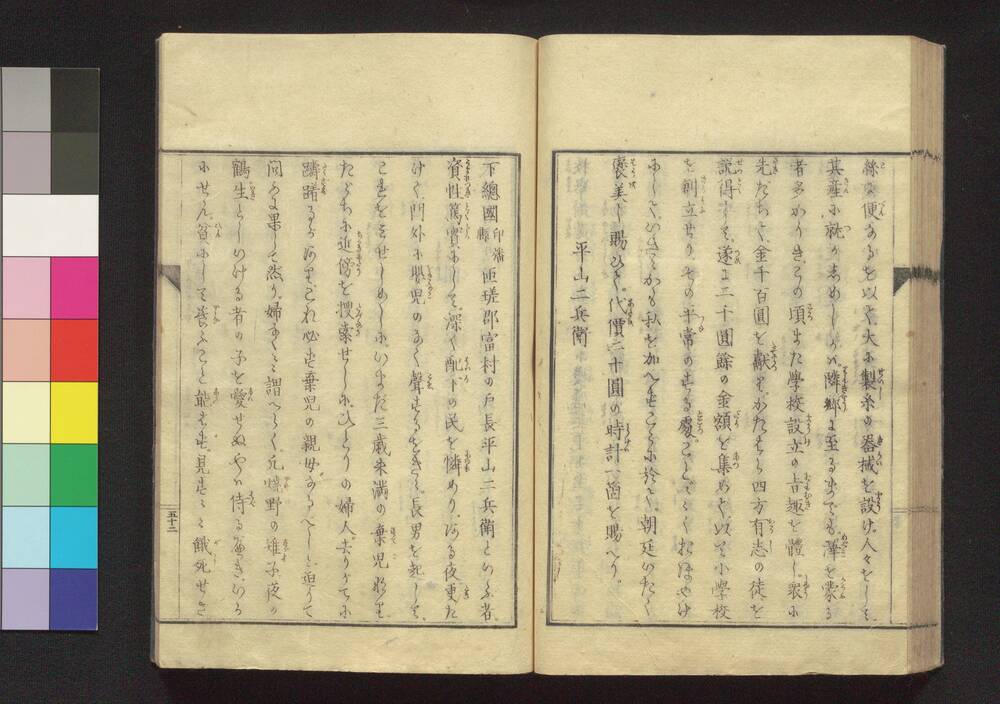 絲の便あるを以て、大に製糸の器械を設け、人々をして
其産に就かしめしかバ、隣郷に至るまでも、澤を蒙る
者多かりき、この頃また學校設立の旨趣を體し、衆に
先だちて、金千百圓を獻り、かたはら四方有志の徒を
説得して、遂に二千圓餘の金額を集めて、以て小學校
を創立せり、その平常のする處、ことごとくおほやけ
にして、いさゝかも私を加へず、こゝに於て、朝廷いたく
褒美し賜ひて、代價二十圓の時計一箇を賜へり。
平山二兵衛
下總國印旛縣匝瑳郡富村の戸長平山二兵衛といふ者、
資性篤實にして、深く配下の民を憐めり、ある夜更た
けて、門外に嬰児のなく聲するをきゝ、長男を起して、
これをみせしめしに、いまだ三歳未満の棄児なり、
たゞちに近傍を捜索せしに、ひとりの婦人去りがてに
躊躇するあり、これ必ず棄児の親母なるべしと、迫りて
問ふに果して然り、婦なくなく謂へらく、凡燒野の雉子夜の
鶴生としいける者の子を愛せぬやハ侍るべき、いか
にせん、貧にして養ふこと能はず、見す見す餓死せさ
五十二